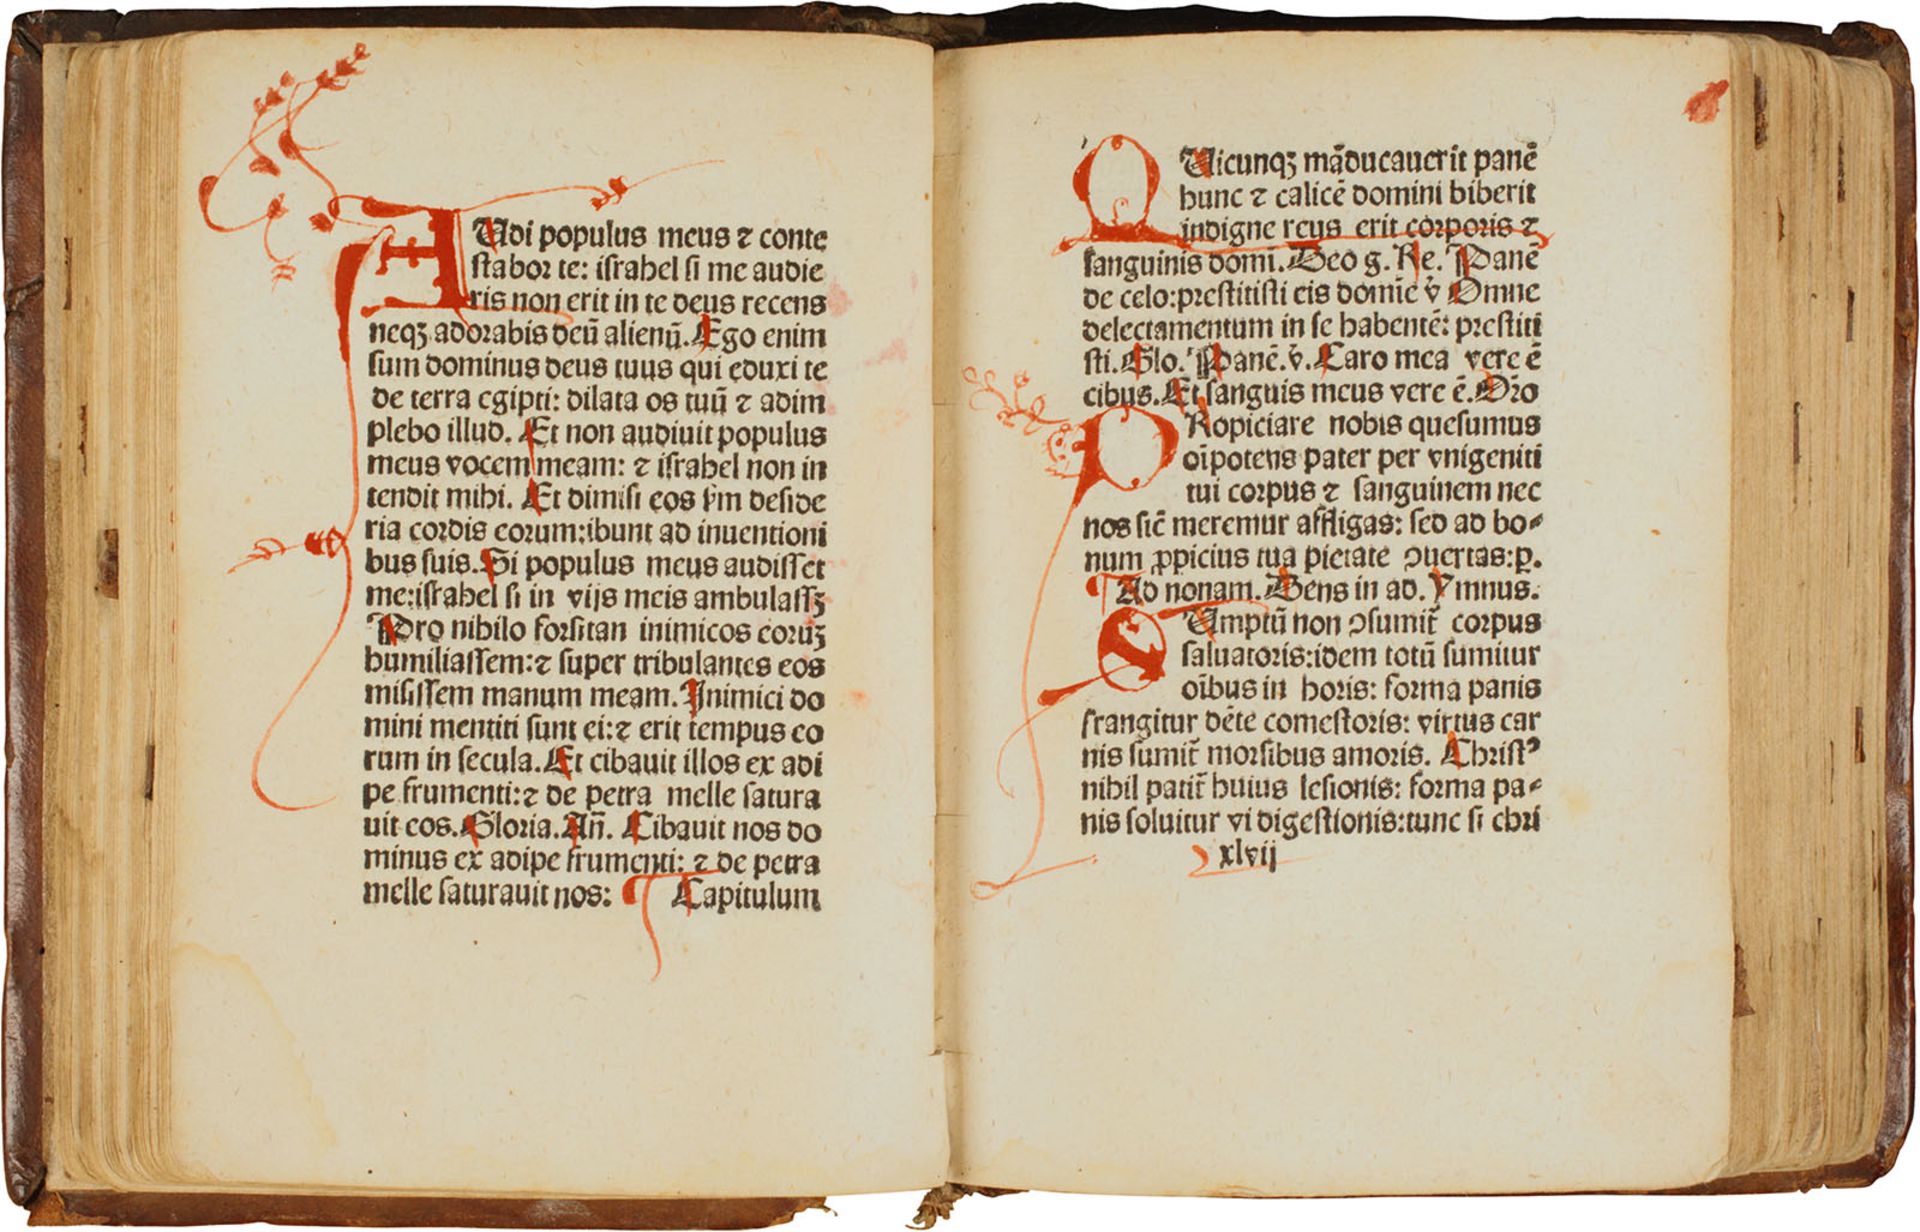 AUdi populus meus ⁊ conte
stabor te: israhel si me audie
ris non erit in te deus recens
neqꝫ adorabis deū alienū. Ego enim
sum dominus deus tuus qui eduxi te
de terra egipti: dilata os tuū ⁊ adim
plebo illud. Et non audiuit populus
meus vocem meam: ⁊ israhel non in
tendit mihi. Et dimisi eos ẜm deside
ria cordis eorum: ibunt ad inuentioni
bus suis. Si populus meus audisset
me: israhel si in vijs meis ambulassꝫ
Pro nihilo forsitan inimicos eoruꝫ
humiliassem: ⁊ super tribulantes eos
misissem manum meam. Inimici do
mini mentiti sunt ei: ⁊ erit tempus eo
rum in secula. Et cibauit illos ex adi
pe frumenti: ⁊ de petra melle satura
uit eos. Gloria. Añ. Cibauit nos do
minus ex adipe frumenti: ⁊ de petra
melle saturauit nos: Capitulum
QUicunqꝫ māducauerit panē
hunc ⁊ calicē domini biberit
indigne reus erit corporis ⁊
sanguinis domī. Deo g. Re. Panē
de celo: prestitisti eis domīe v̇ Omne
delectamentum in se habentē: prestiti
sti. Glo. Panē. v̇. Caro mea vere ē
cibus. Et sanguis meus vere ē. Oro
PRopiciare nobis quesumus
oīpotens pater per vnigeniti
tui corpus ⁊ sanguinem nec
nos sic̄ meremur affligas: sed ad bo⸗
num ꝓpicius tua pietate ꝯuertas: p.
¶ Ad nonam. Deus in ad. Ymnus.
SUmptū non ꝯsumit̄ corpus
saluatoris: idem totū sumitur
oībus in horis: forma panis
frangitur dēte comestoris: virtus car
nis sumit̄ morsibus amoris. Christꝰ
nihil patit̄ huius lesionis: forma pa⸗
nis soluitur vi digestionis: tunc si chri
xlvij